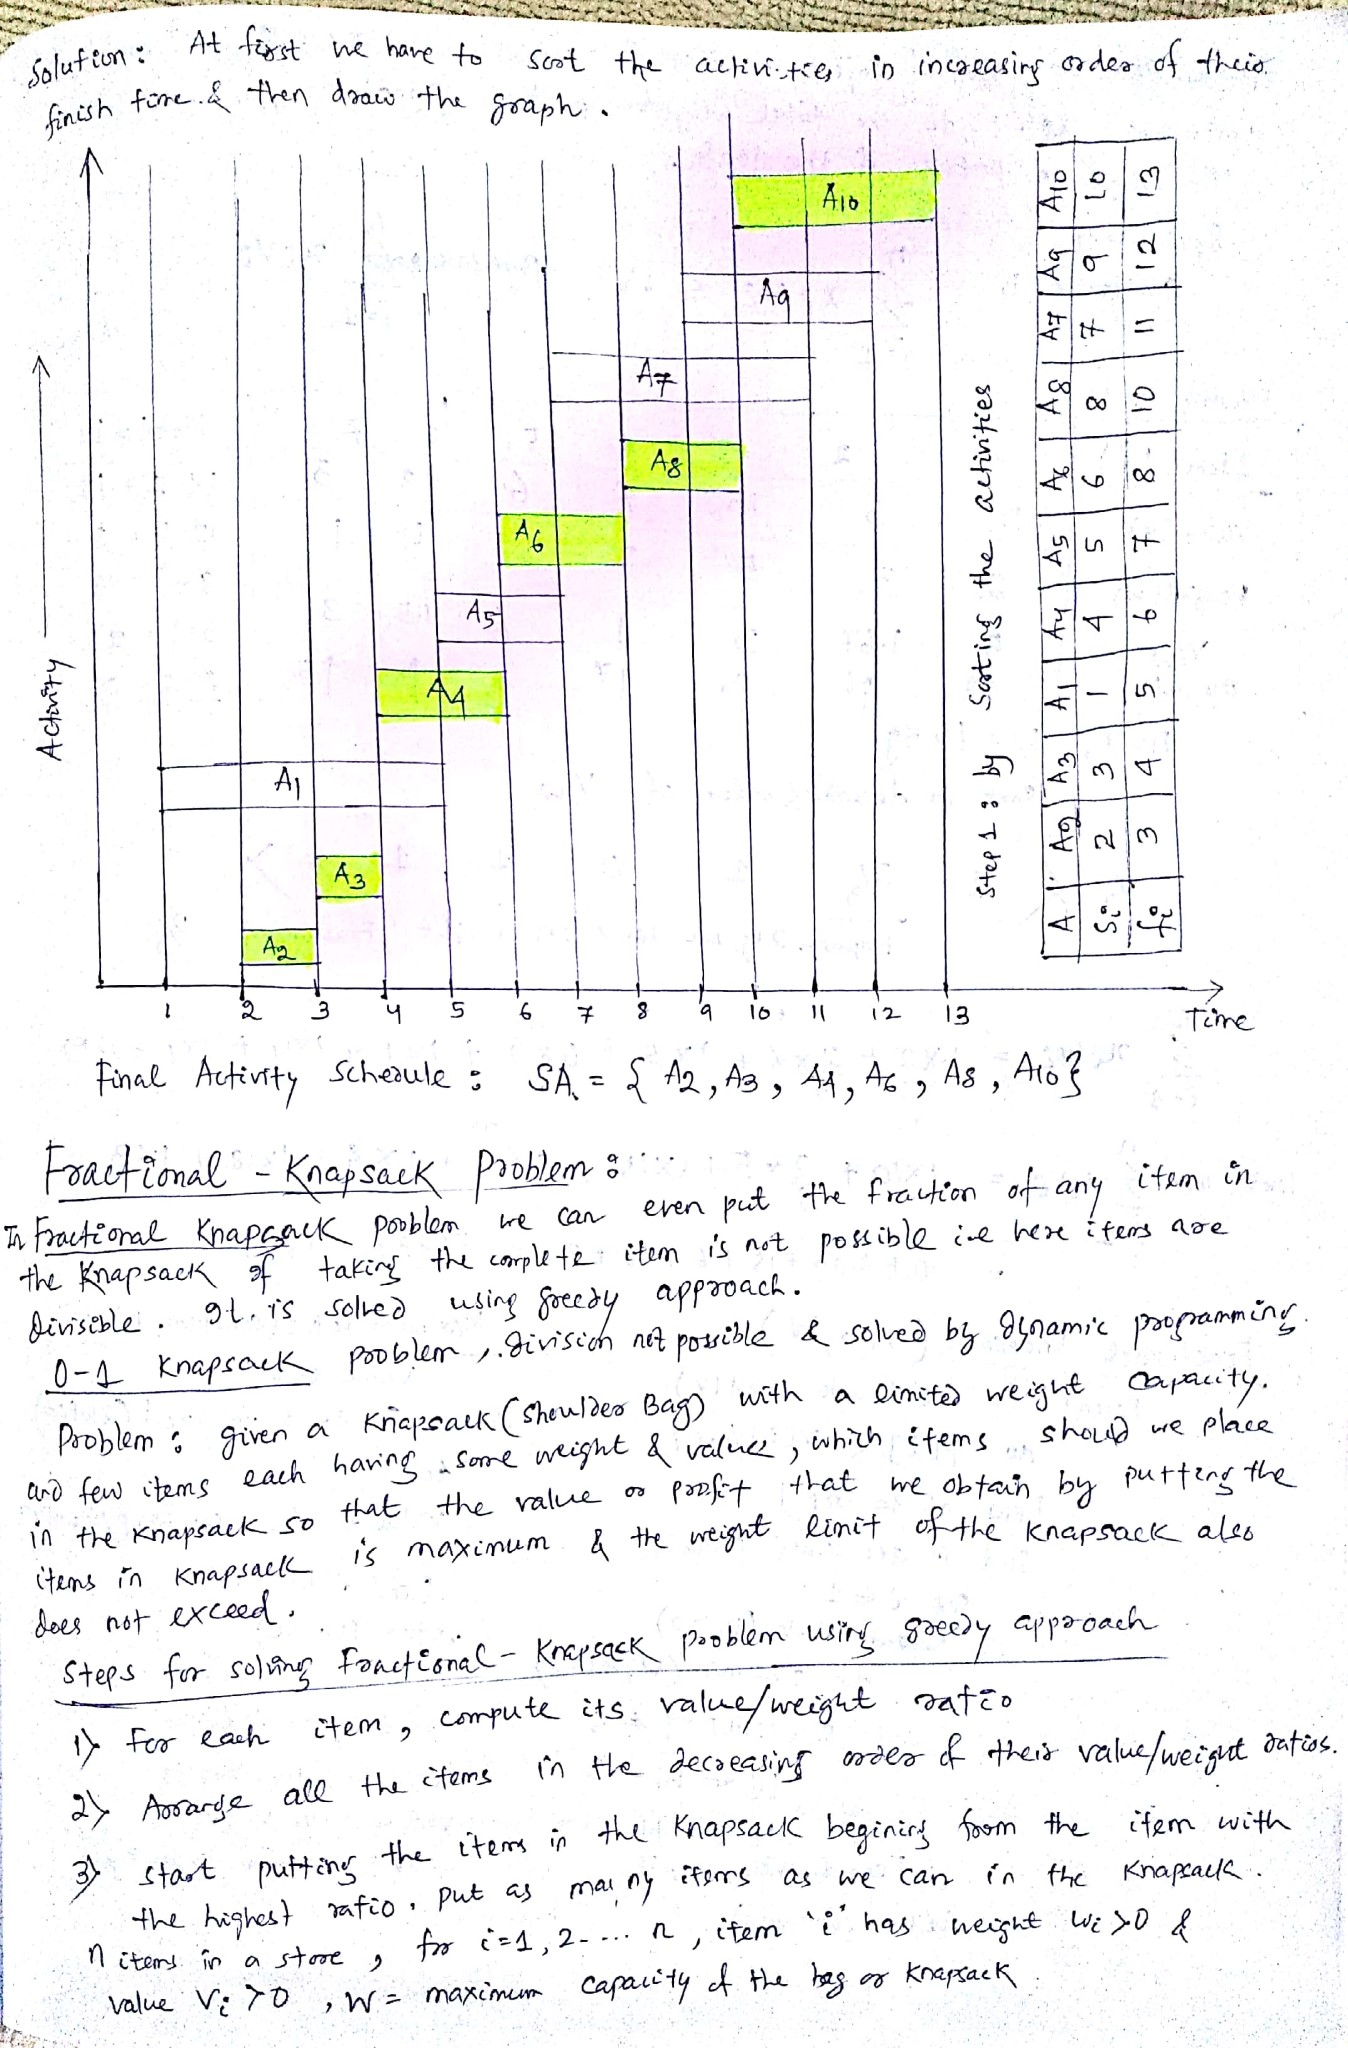 Solution : At first we have to sort the activities in increasing order of their
finish time & then draw the graph .
Activity
A10
A9
A7
A8
A6
A5
A4
A1
A3
A2
1 2 3 4 5 6 7 8 9 10 11 12 13
Time
Step 1 : by Sorting the activities
A A2 A3 A1 A4 A5 A6 A8 A7 A9 A10
Si 2 3 1 4 5 6 8 7 9 10
fi 3 4 5 6 7 8 10 11 12 13
Final Activity Schedule : SA = { A2, A3, A4, A6, A8, A10}
Fractional - Knapsack Problem :
In Fractional Knapsack problem we can even put the fraction of any item in
the Knapsack if taking the complete item is not possible i.e here items are
divisible . It is solved using greedy approach.
0-1 Knapsack problem , division not possible & solved by dynamic programming.
Problem : given a Knapsack (Shoulder Bag) with a limited weight capacity.
and few items each having some weight & values , which items should we place
in the Knapsack so that the value or profit that we obtain by putting the
items in Knapsack is maximum & the weight limit of the Knapsack also
does not exceed .
Steps for solving Fractional - Knapsack problem using greedy approach
1) For each item , compute its value/weight ratio
2) Arrange all the items in the decreasing order of their value/weight ratios.
3) Start putting the items in the Knapsack begining from the item with
the highest ratio . Put as many items as we can in the Knapsack .
n items in a store , for i=1, 2- ... n , item 'i' has weight Wi >0 &
value Vi >0 , W = maximum capacity of the bag or Knapsack